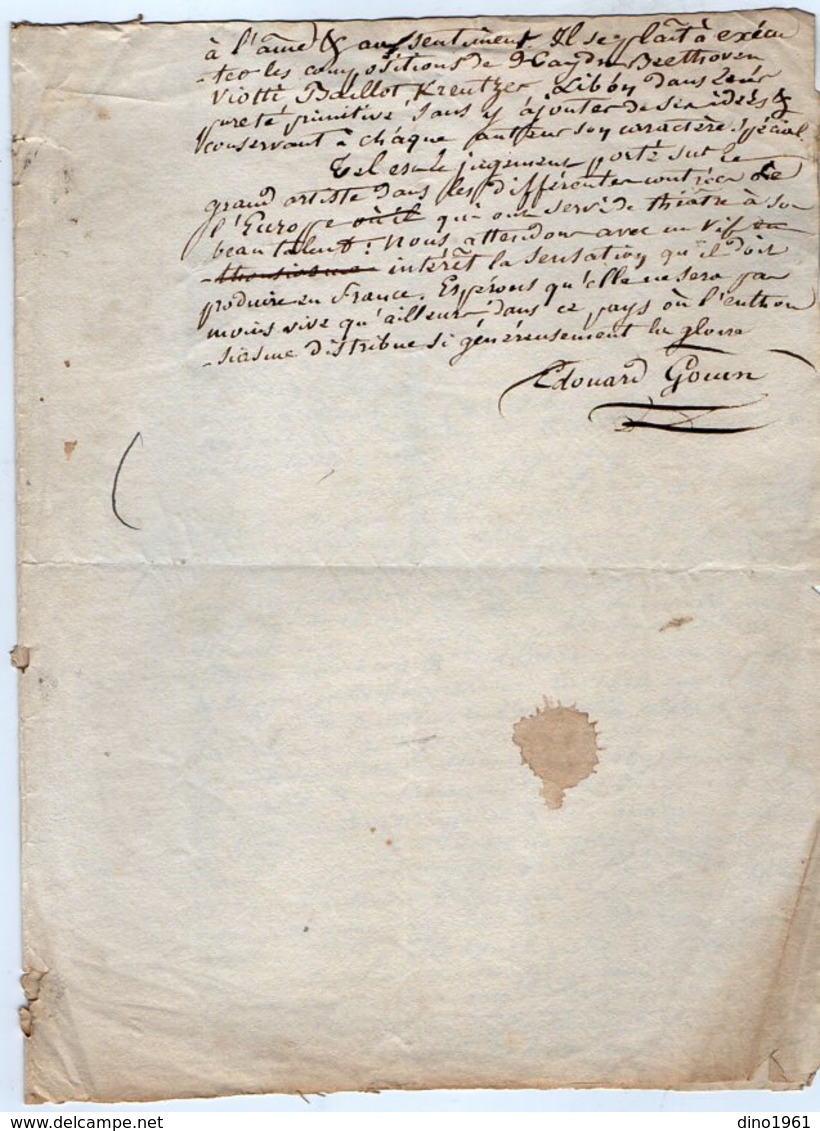 à l'âme & au sentiment. Il se plaît à exécu
-ter les compositions de Haydn Beethoven
Viotti Baillot Kreutzer Libon dans leur
pureté primitive sans y ajouter de ses idées &
conservant à chaque auteur son caractère spécial.
Tel est le jugement porté sur le
grand artiste dans les différentes contrées de
l'Europe où il qui ont servi de théâtre à son
beau talent: nous attendons avec un vif en
-thousiasme intérêt la sensation qu'il doit
produire en France. Espérons qu'elle ne sera pas
moins vive qu'ailleurs dans ce pays où l'enthou
-siasme distribue si généreusement la gloire
Edouard Gouin
dino1961